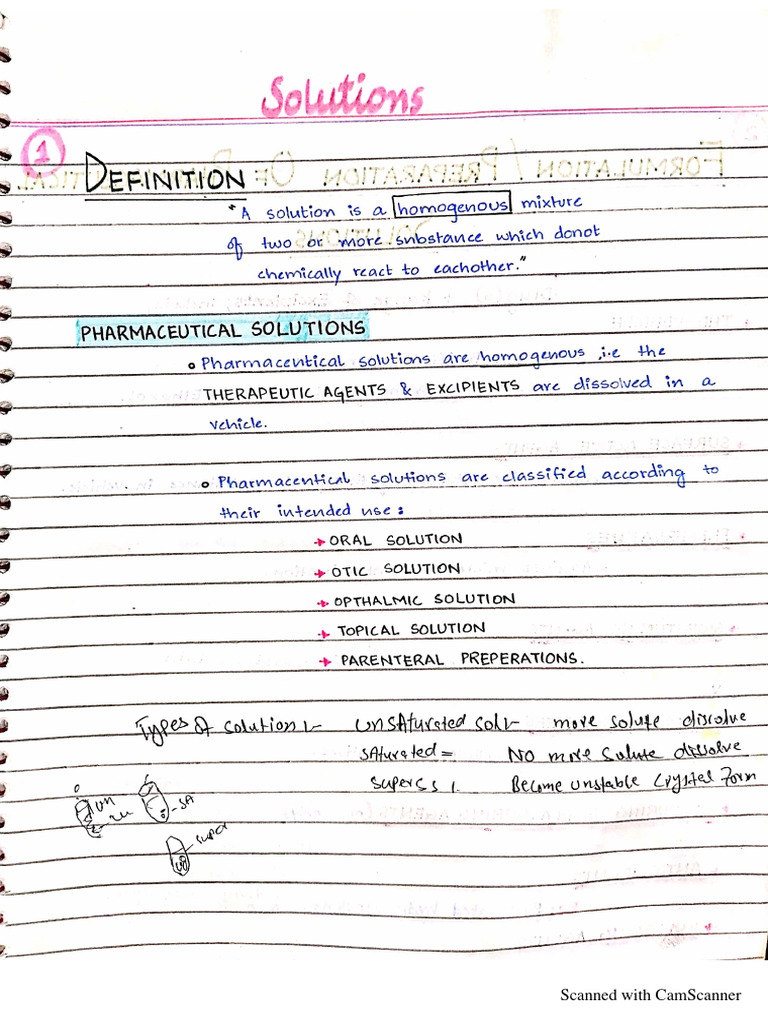 Solutions
1
DEFINITION
"A solution is a homogenous mixture
of two or more substance which donot
chemically react to eachother."
PHARMACEUTICAL SOLUTIONS
Pharmaceutical solutions are homogenous, i.e the
THERAPEUTIC AGENTS & EXCIPIENTS are dissolved in a
vehicle.
Pharmaceutical solutions are classified according to
their intended use:
ORAL SOLUTION
OTIC SOLUTION
OPTHALMIC SOLUTION
TOPICAL SOLUTION
PARENTERAL PREPERATIONS.
Types of solution :- UnSAturated sol :- more solute dissolve
SAturated = No more Solute dissolve
Super Become unstable Crystal Form
UN
SA
super
Scanned with CamScanner